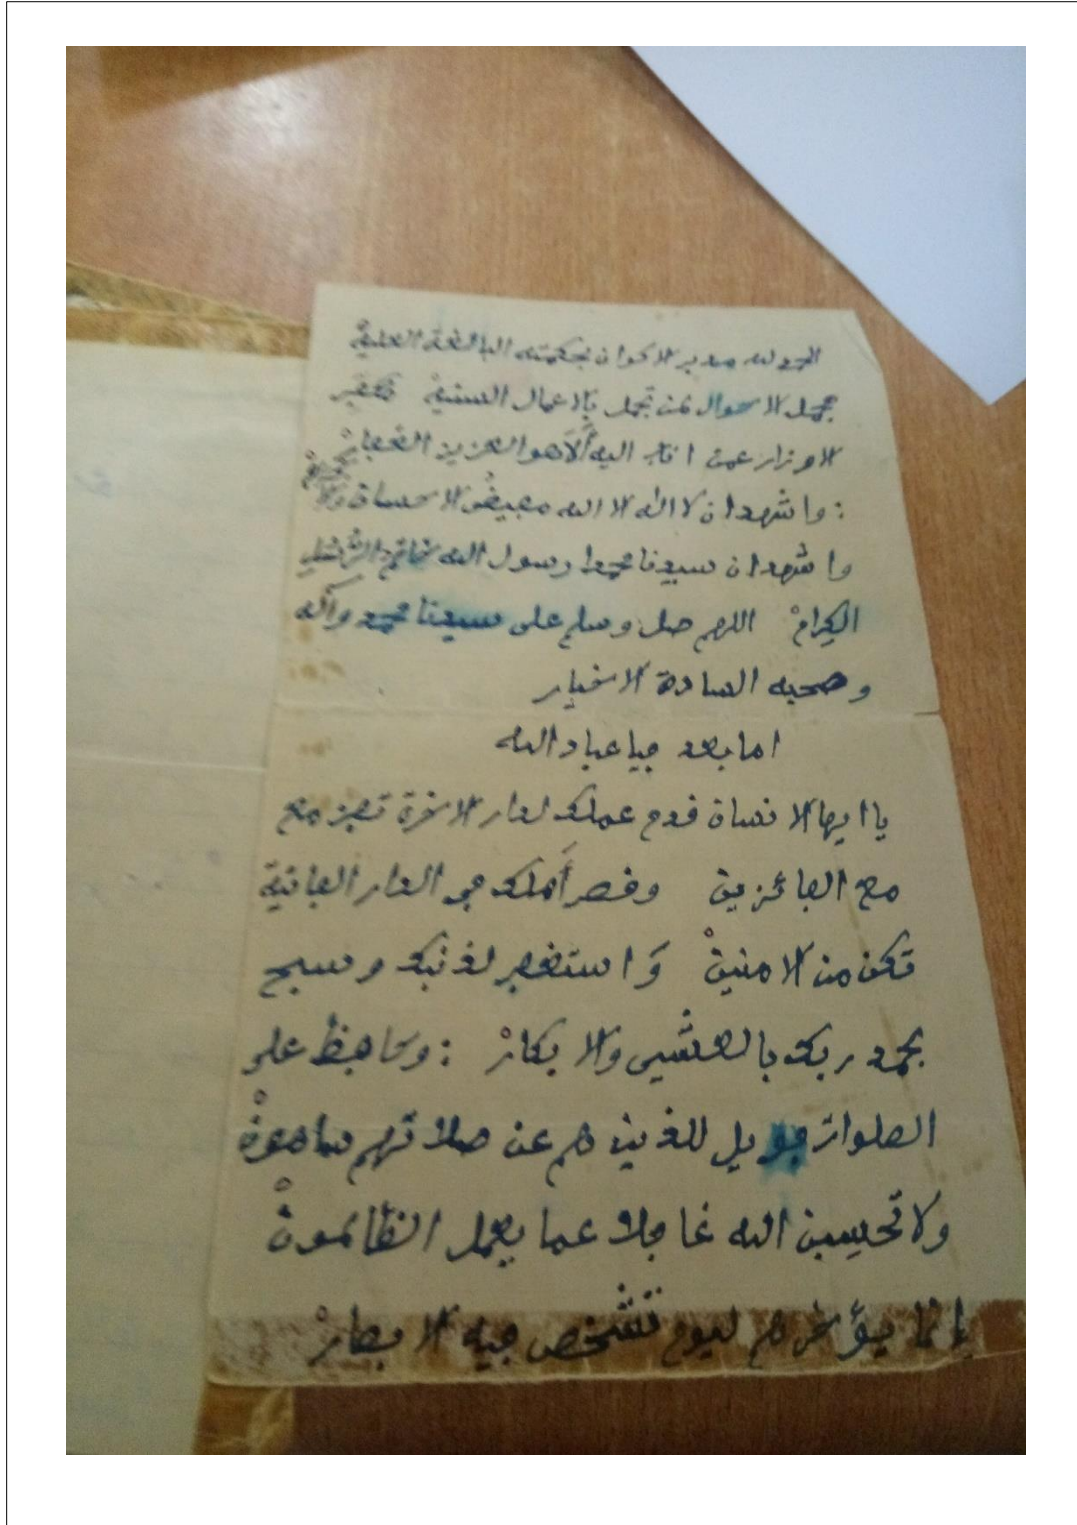 الحمد لله مدبر الاكوان بحكمته البالغة العلية
مجمل الاحوال لمن تجمل بالاعمال السنية مكفر
الاوزار عمن اناب اليه ألا هو العزيز الغفار
: واشهد ان لا اله الا الله مفيض الاحسان
واشهد ان سيدنا محمدا رسول الله خاتم
الكرام اللهم صل وسلم على سيدنا محمد وآله
وصحبه السادة الاخيار
اما بعد فيا عباد الله
يا ايها الانسان قدم عملك لدار الاخرة تفز مع
مع الفائزين وقصر أملك في الدار الفانية
تكن من الامنين وَاستغفر لذنبك وسبح
بحمد ربك بالعشي والابكار : وحافظ على
الصلوات فويل للذين هم عن صلاتهم ساهون
ولا تحسبن الله غافلا عما يعمل الظالمون
إنما يؤخرهم ليوم تشخص فيه الابصار